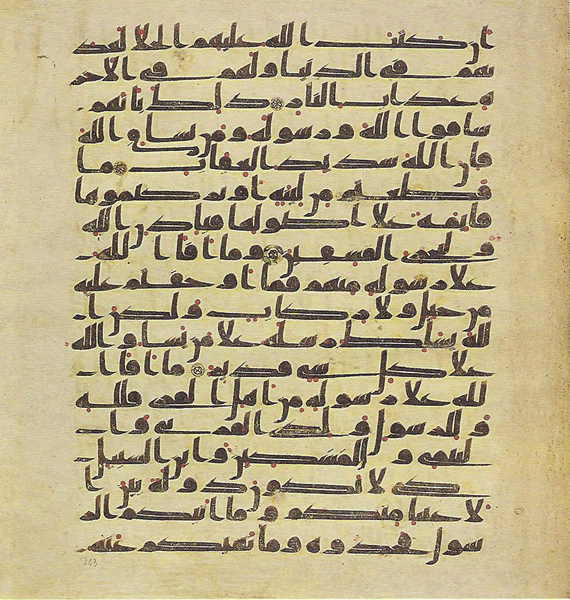 ان كتب الله عليهم الجلا لعذ
بهم في الدنيا ولهم في الاخر
ة عذاب النار ذلك بانهم
شاقوا الله ورسوله ومن يشاق الله
فان الله شديد العقاب ما
قطعتم من لينة او تركتموها
قايمة على اصولها فباذن الله
وليخزي الفسقين وما افا الله
على رسوله منهم فما اوجفتم عليه
من خيل ولا ركاب ولكن ا
لله يسلط رسله على من يشا والله
على كل شي قدير ما افا ا
لله على رسوله من اهل القرى فلله
وللرسول ولذي القربى وا
ليتمى والمسكين وابن السبيل
كي لا يكون دولة بين ا
لاغنيا منكم وما اتيكم الر
سول فخذوه وما نهيكم عنه
263